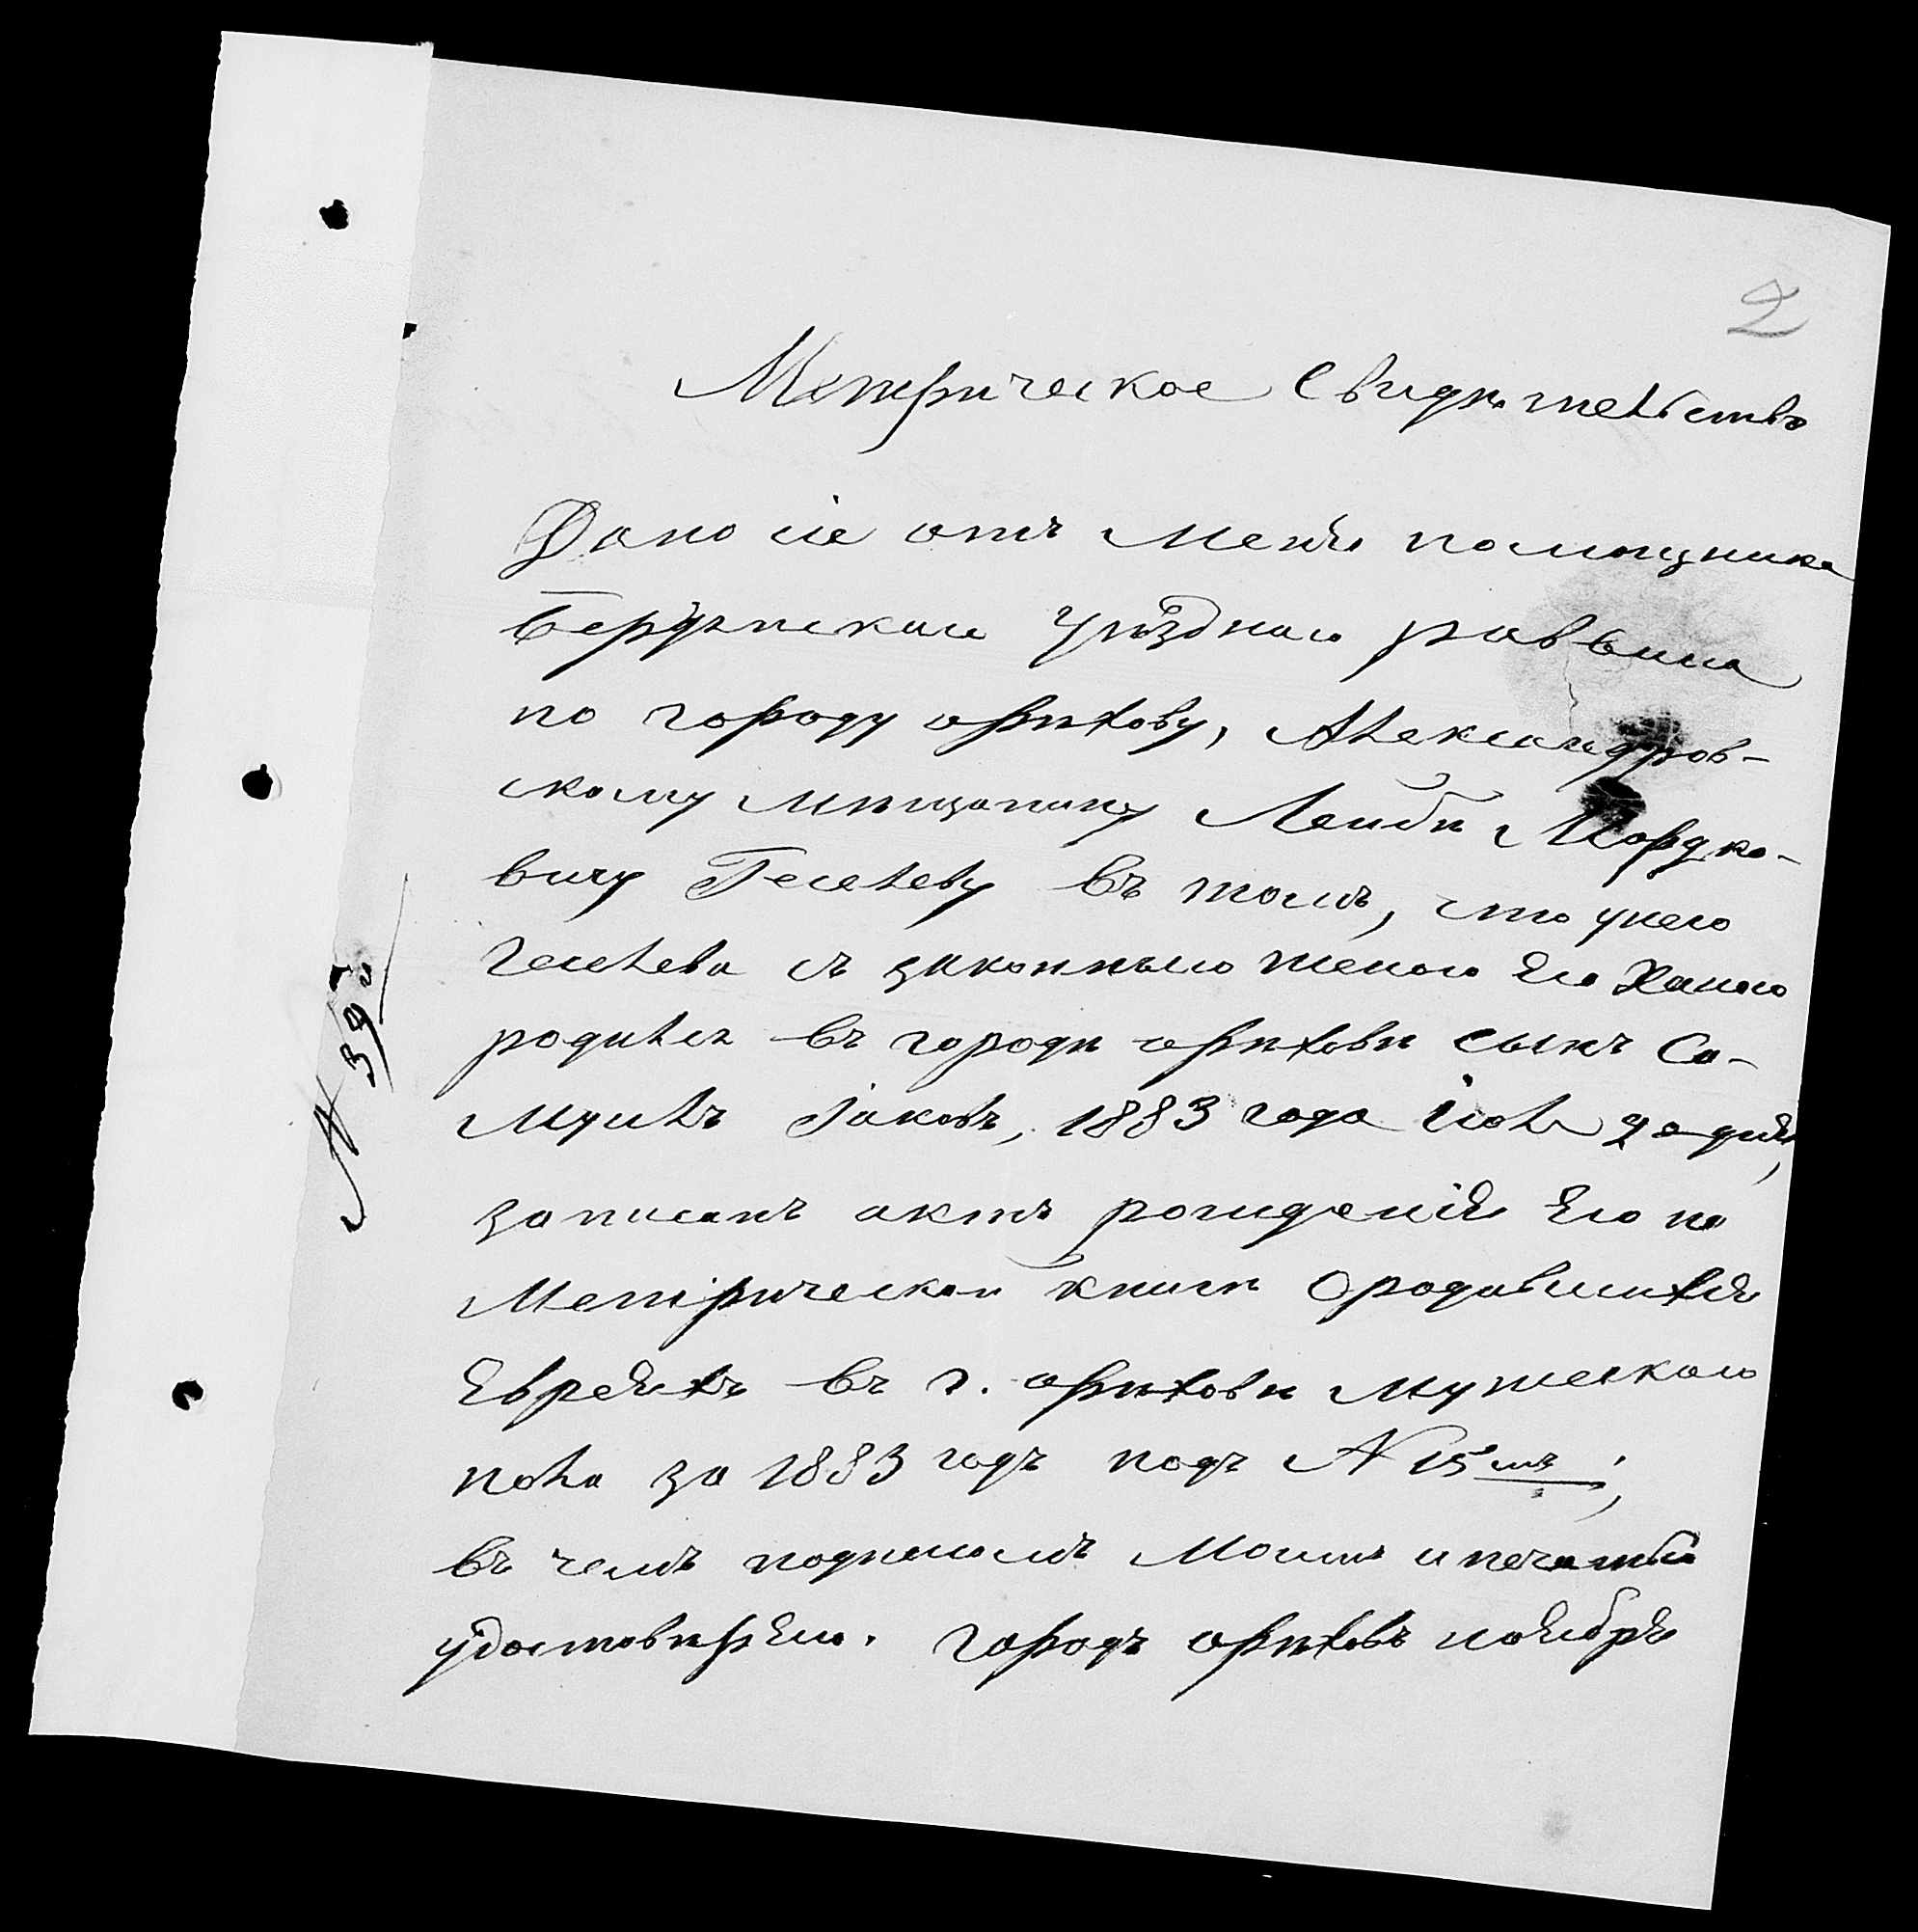 2
Метрическое Свидѣтельство
Дано сіе отъ меня помощника
Бердянскаго Уѣзднаго раввина
по городу орѣхову, Александров-
скому мѣщанину Лейбѣ Мордко-
вичу Гселеву въ томъ, что унего
Гселева съ законныю женою Его Ханою
родился въ городѣ орѣховѣ сынъ Са-
муилъ Іаковъ, 1883 года Іюля 2 дня,
записанъ актъ рожденія Его по
Метрической книгѣОродившихся
Евреяхъ въ г. орѣховѣ мужескаго
пола за 1883 годъ подъ N 15мъ;
въ чемъ подписомъ Моимъ ипечатью
удостовѣряю. городъ орѣховъ ноября